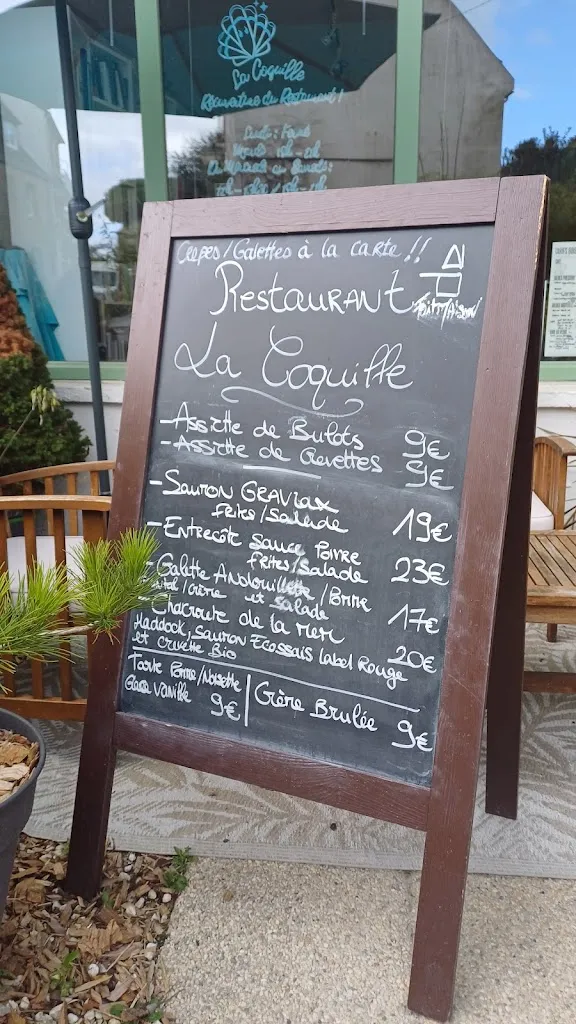 La Coquille
Crêpes/Galettes à la carte !!
Restaurant
Fait Maison
La Coquille
- Assiette de Bulots 9€
- Assiette de Crevettes 9€
- Saumon GRAVLAX
Frites/Salade 19€
- Entrecôte Sauce Poivre
Frites/Salade 23€
- Galette Andouillette/Pomme
/crème et Salade 17€
- Choucroute de la mer
Haddock, Saumon Ecossais label Rouge 20€
et crevette Bio
Tarte Pomme/Noisette
Glace vanille 9€
Crème Brulée 9€